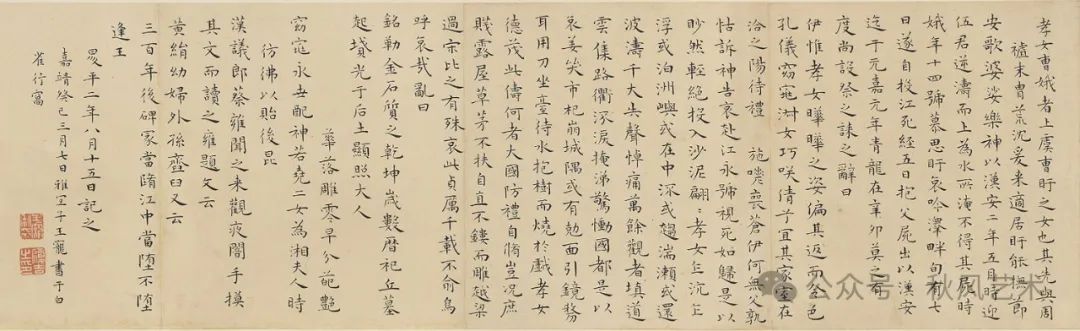 孝女曹娥者上虞曹盱之女也其先與周
末胄荒沉爰来適居盱能撫節
安歌婆娑樂神以漢安二年五月時迎
伍君逆濤而上為水所淹不得其屍時
娥年十四號慕思盱哀吟澤畔旬有七
日遂自投江死經五日抱父屍出以漢安
迄于元嘉元年青龍在辛卯莫之有
度尚設祭之誄之辭曰
伊惟孝女曄曄之姿偏其返而令色
孔儀窈窕淑女巧咲倩兮宜其家室在
洽之陽待禮 施嗟喪蒼伊何無父孰
怙訴神告哀赴江永號視死如歸是以
眇然輕絕投入沙泥翩〻孝女乍沉乍
浮或泊洲嶼或在中流或趨湍瀨或還
波濤千夫失聲悼痛萬餘觀者填道
雲集路衢泣淚掩涕驚慟國都是以
哀姜哭市杞崩城隅或有勊面引鏡剺
耳用刀坐臺待水抱樹而燒於戲孝女
德茂此儔何者大國防禮自脩豈況庶
賤露屋草茅不扶自直不鏤而雕越梁
過宗比之有殊哀此貞厲千載不渝烏
呼哀哉亂曰
銘勒金石質之乾坤歲數曆祀丘墓
起墳光于后土顯照夫人
落雕零早分葩艷
窈窕永世配神若堯二女為湘夫人時
彷彿以貽後昆
漢議郎蔡雍聞之来觀夜闇手摸
其文而讀之雍題文云
黃絹幼婦外孫齏臼又云
三百年後碑冢當墮江中當堕不堕
逢王
昇平二年八月十五日記之
嘉靖癸巳三月七日雅宜子王寵書于白
雀行窩
公众号·秋风艺术